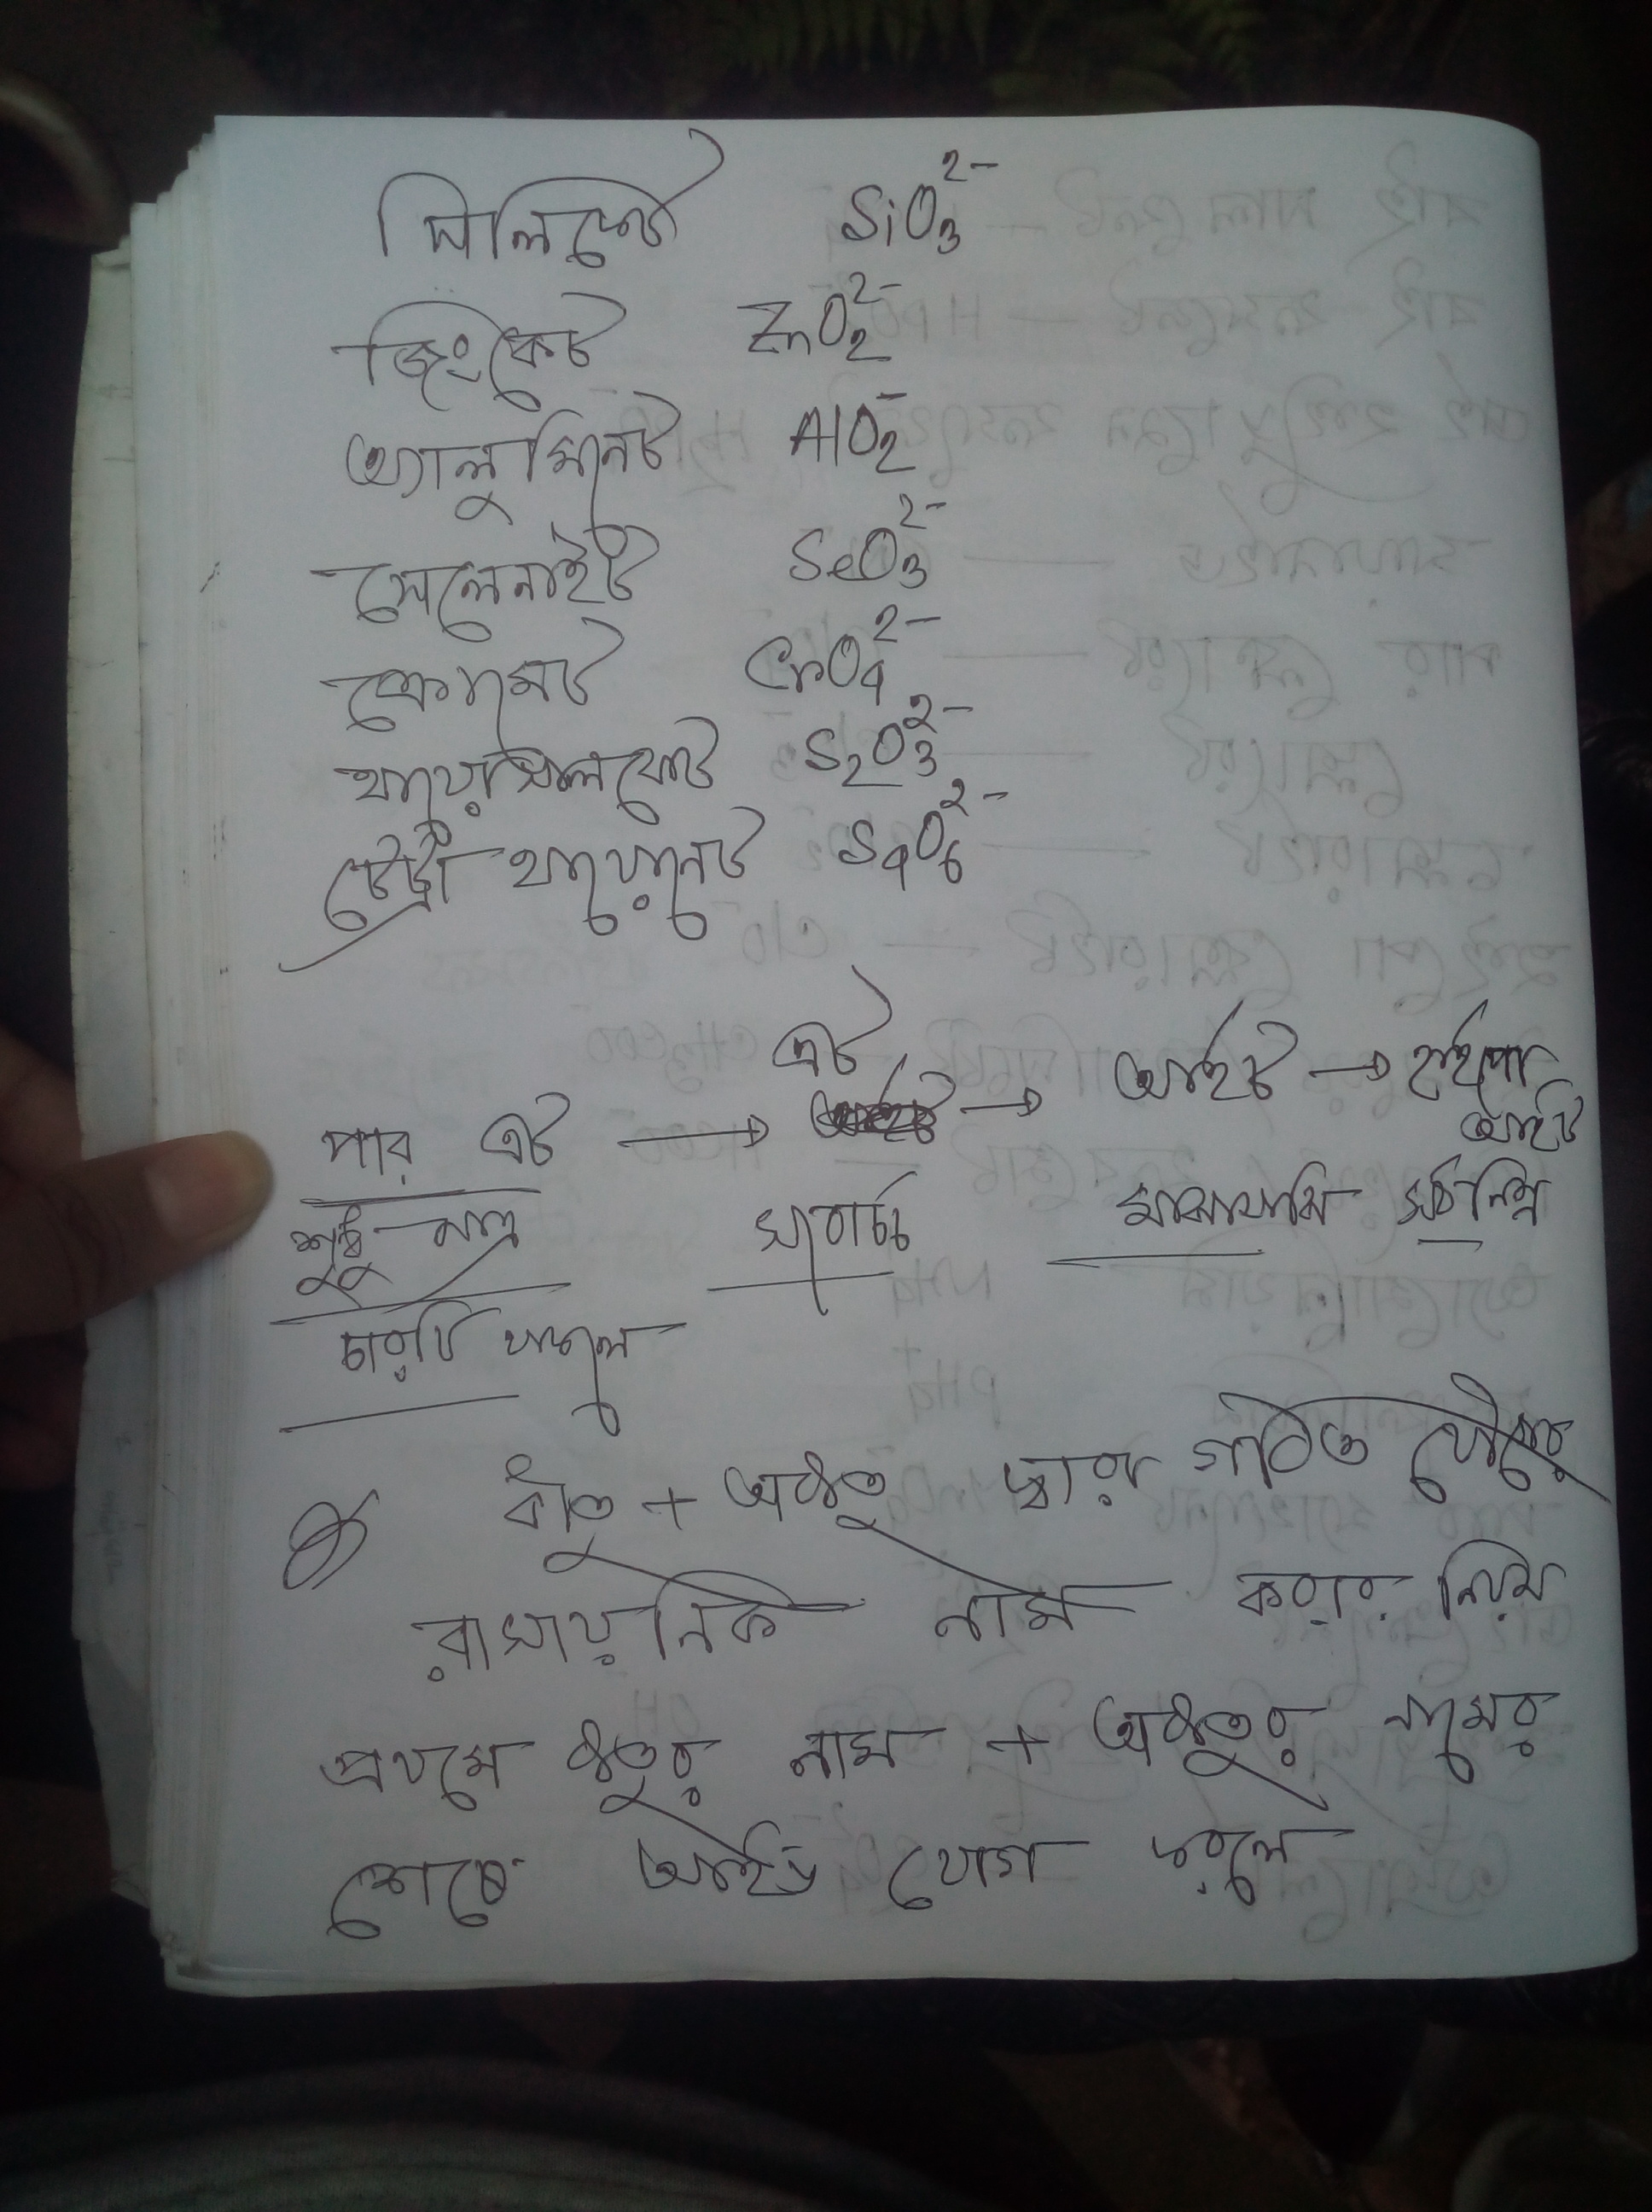 সিলিকেট SiO₃²⁻
জিংকেট ZnO₂²⁻
অ্যালুমিনেট AlO₂⁻
সেলেনাইট SeO₃²⁻
ক্রোমেট CrO₄²⁻
থায়োসালফেট S₂O₃²⁻
টেট্রা থায়োনেট S₄O₆²⁻
পার এট → এট → আইট → হাইপো আইট
সর্বোচ্চ মাঝামাঝি সর্বনিম্ন
চারটি থাকলে
ধাতু + অধাতু দ্বারা গঠিত যৌগের
রাসায়নিক নাম করার নিয়ম
প্রথমে ধাতুর নাম + অধাতুর নামের
শেষে আইড যোগ করলে